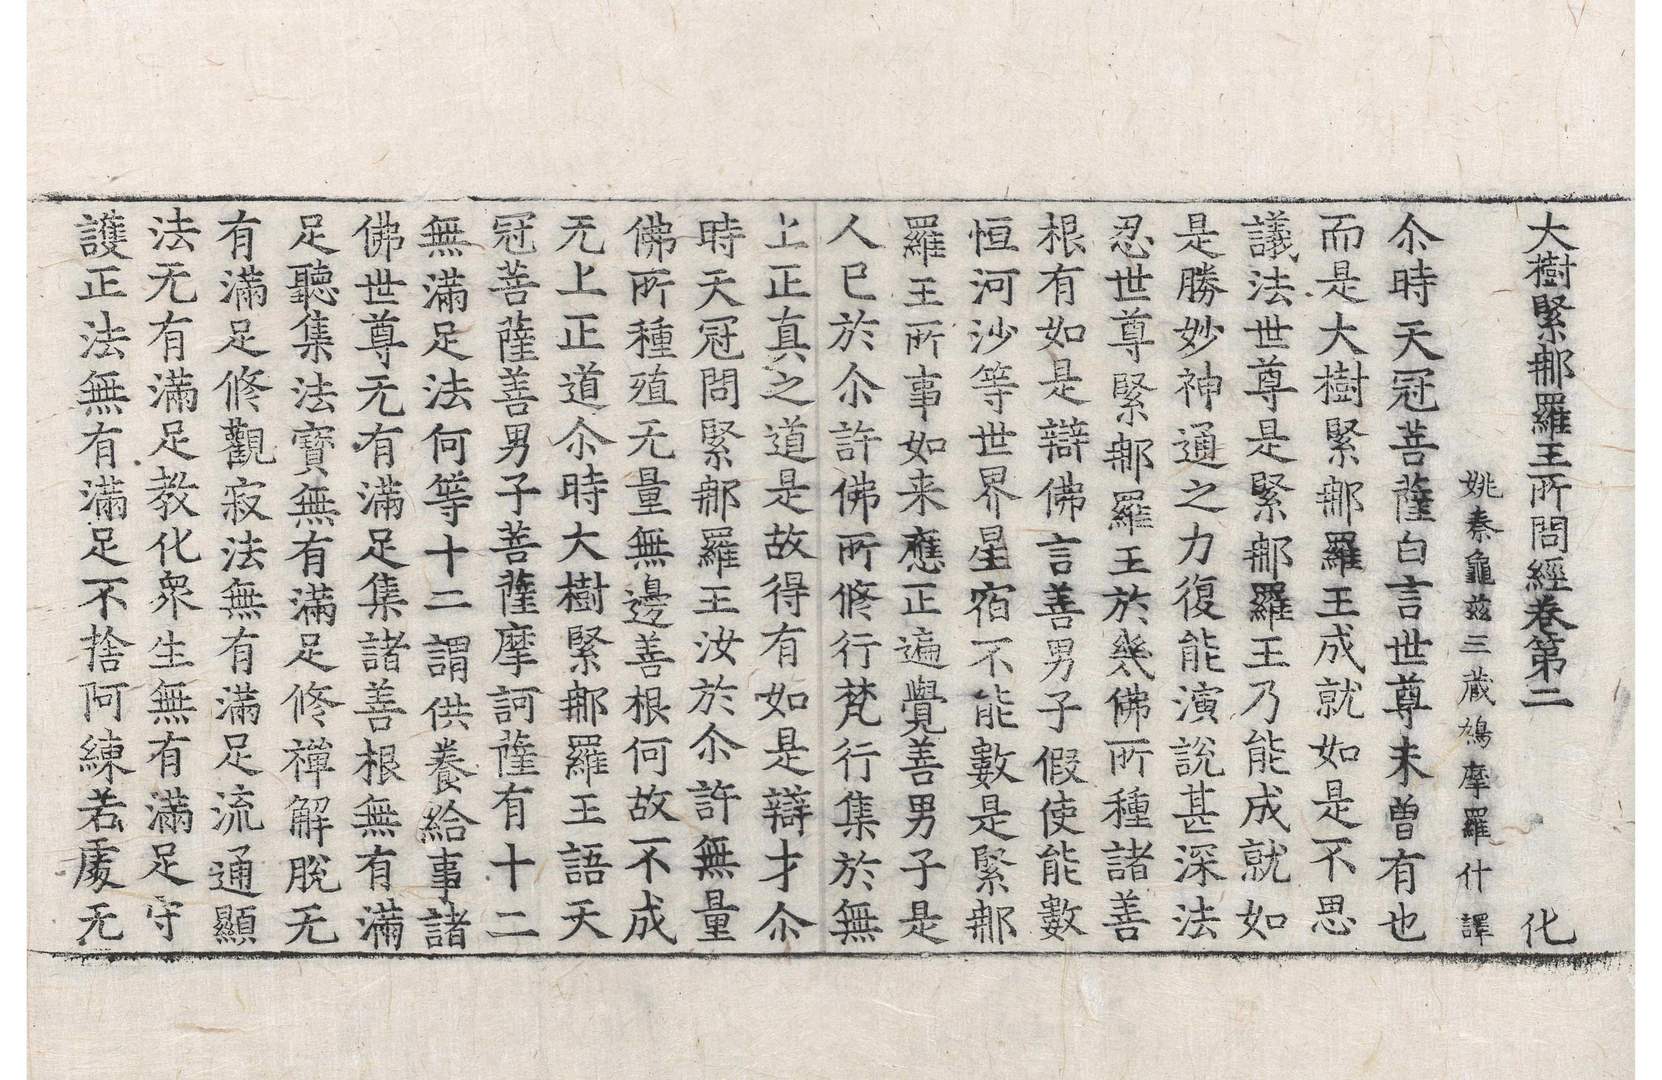 大樹緊那羅王所問經卷第二　化
姚秦龜茲三藏鳩摩羅什譯
尒時天冠菩薩白言世尊未曾有也
而是大樹緊那羅王成就如是不思
議法世尊是緊那羅王乃能成就如
是勝妙神通之力復能演說甚深法
忍世尊緊那羅王於幾佛所種諸善
根有如是辯佛言善男子假使能數
恒河沙等世界星宿不能數是緊那
羅王所事如来應正遍覺善男子是
人已於尒許佛所修行梵行集於無
上正真之道是故得有如是辯才尒
時天冠問緊那羅王汝於尒許無量
佛所種殖无量無邊善根何故不成
无上正道尒時大樹緊那羅王語天
冠菩薩善男子菩薩摩訶薩有十二
無滿足法何等十二謂供養給事諸
佛世尊无有滿足集諸善根無有滿
足聽集法寶無有滿足修禪解脫无
有滿足修觀寂法無有滿足流通顯
法无有滿足教化衆生無有滿足守
護正法無有滿足不捨阿練若處无